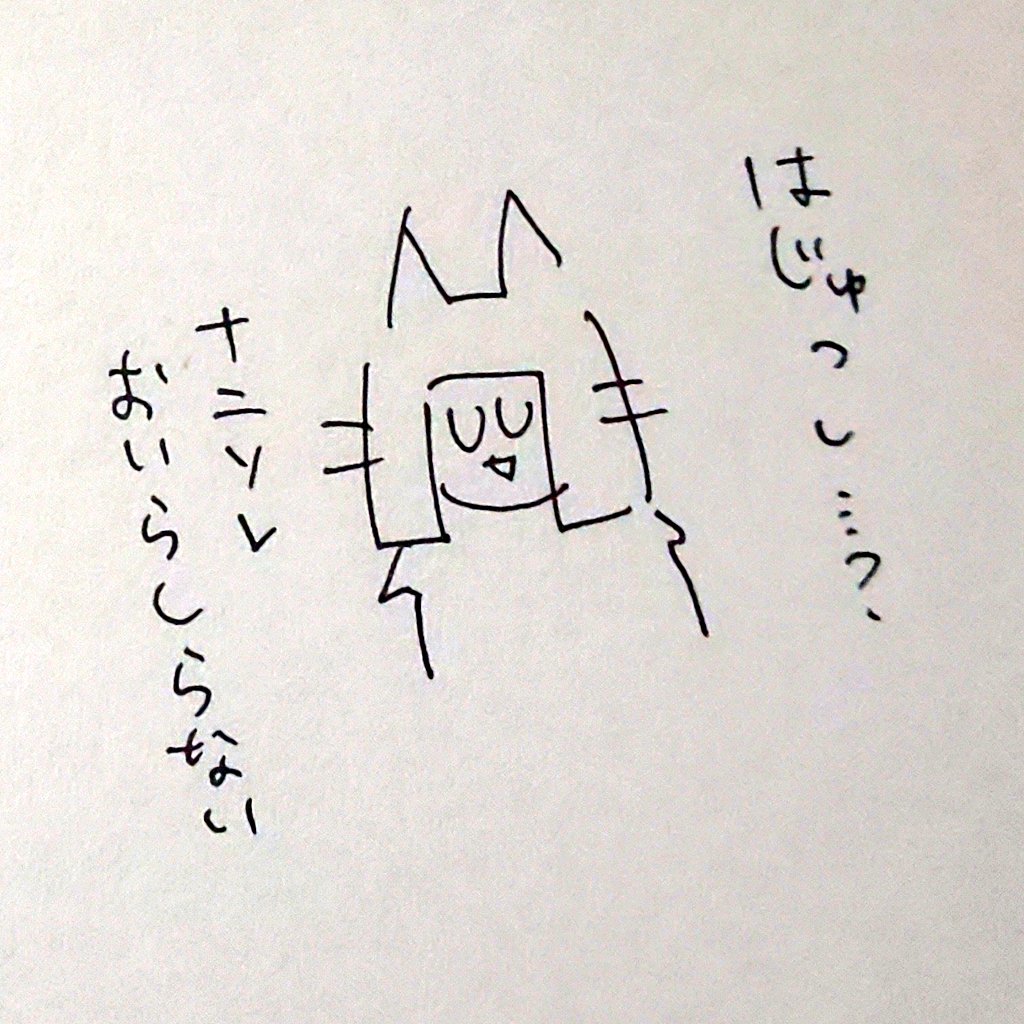 はじゅつし…?
ナニソレ
おいらしらない